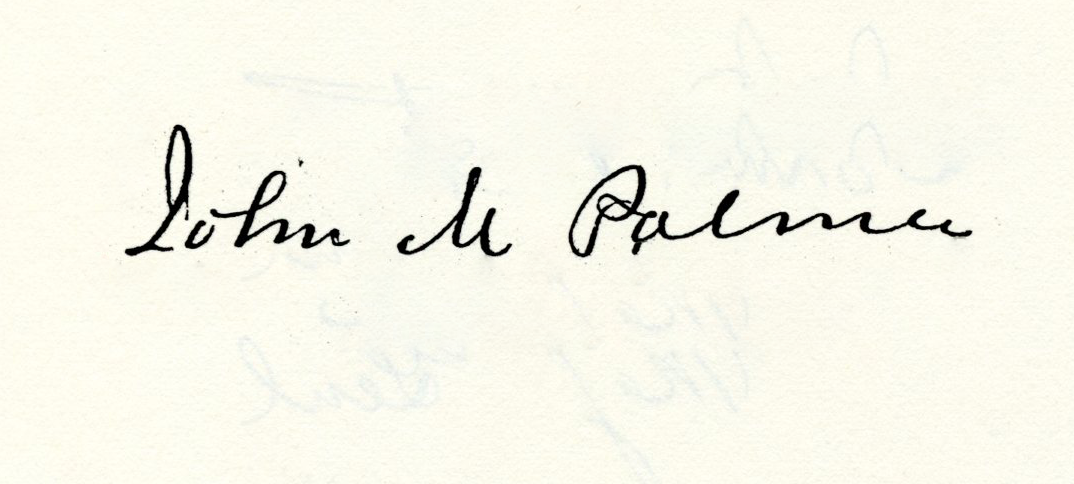 John M Palmer